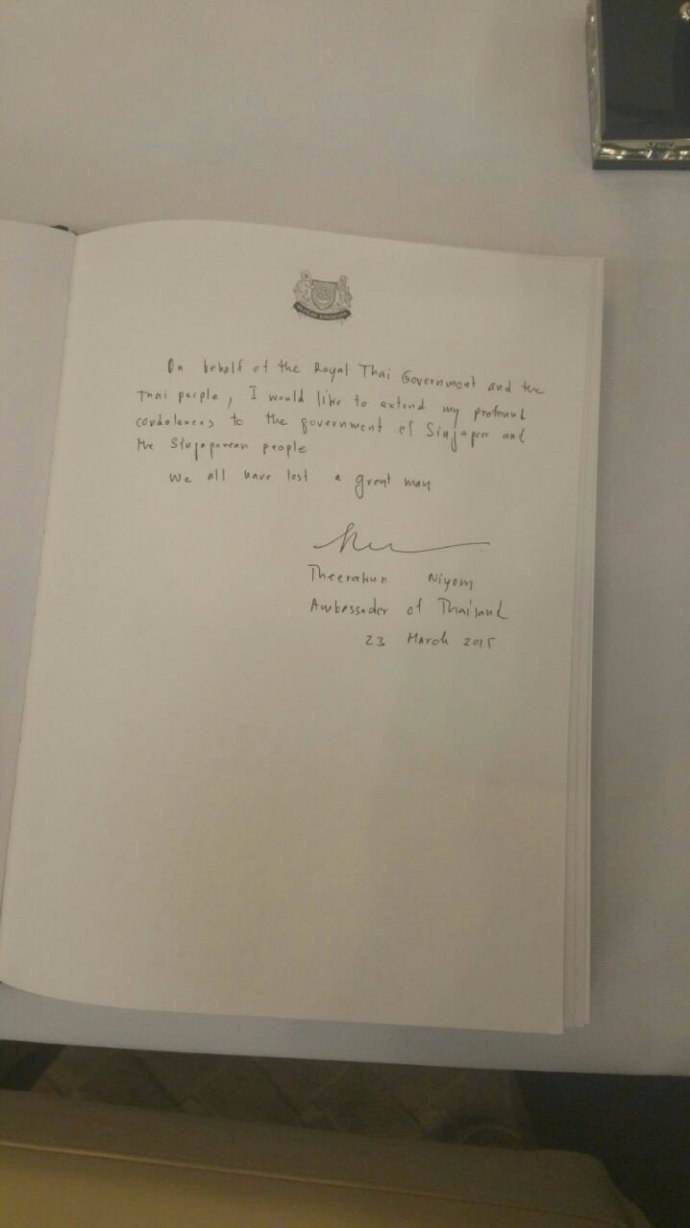 On behalf of the Royal Thai Government and the
Thai people, I would like to extend my profound
condolences to the government of Singapore and
the Singaporean people
We all have lost a great man
Theerakun Niyom
Ambassador of Thailand
23 March 2015